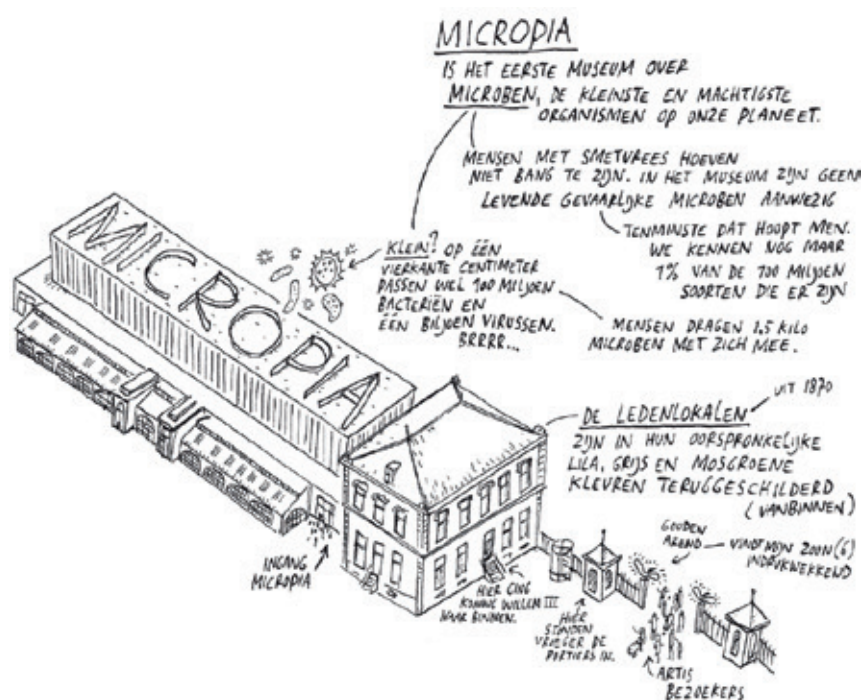 MICROPIA
IS HET EERSTE MUSEUM OVER
MICROBEN, DE KLEINSTE EN MACHTIGSTE
ORGANISMEN OP ONZE PLANEET.
MENSEN MET SMETVREES HOEVEN
NIET BANG TE ZIJN. IN HET MUSEUM ZIJN GEEN
LEVENDE GEVAARLIJKE MICROBEN AANWEZIG
TENMINSTE DAT HOOPT MEN.
WE KENNEN NOG MAAR
1% VAN DE 100 MILJOEN
SOORTEN DIE ER ZIJN
KLEIN? OP ÉÉN
VIERKANTE CENTIMETER
PASSEN WEL 100 MILJOEN
BACTERIËN EN
ÉÉN BILJOEN VIRUSSEN.
BRRRR...
MENSEN DRAGEN 1.5 KILO
MICROBEN MET ZICH MEE.
MICROPIA
DE LEDENLOKALEN
UIT 1870
ZIJN IN HUN OORSPRONKELIJKE
LILA, GRIJS EN MOSGROENE
KLEUREN TERUGGESCHILDERD
(VANBINNEN)
GOUDEN
AREND
VINDT MIJN ZOON (6)
INDRUKWEKKEND
INGANG
MICROPIA
HIER GING
KONING WILLEM III
NAAR BINNEN.
HIER
STONDEN
VROEGER DE
PORTIERS IN.
ARTIS
BEZOEKERS